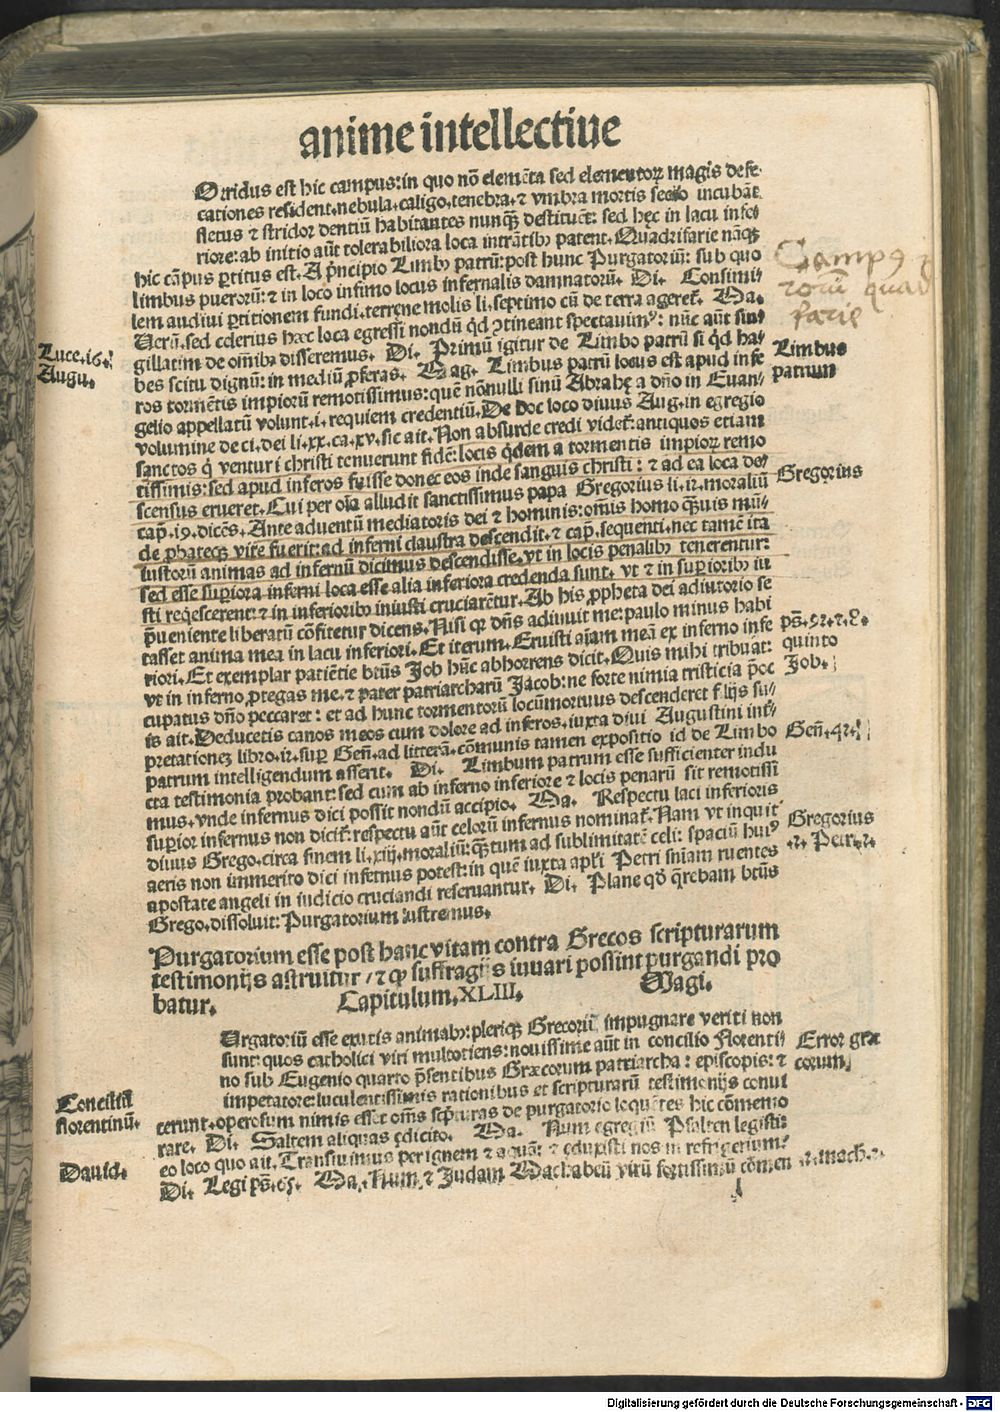 anime intellectiue
Orridus est hic campus: in quo nõ elemẽta sed elementoꝝ magis defe-
cationes resident. nebula. caligo. tenebra. ⁊ vmbra mortis secio incubãt.
fletus ⁊ stridor dentiũ habitantes nunqꝫ destituẽt: sed hęc in lacu infe-
riore: ab initio aũt tolerabiliora loca intrãtibꝰ patent. Quadrifarie nãqꝫ
hic cãpus ꝑtitus est. A pͥncipio Limbꝰ patrũ: post hunc Purgatoriũ: sub quo
limbus puerorũ: ⁊ in loco infimo locus infernalis damnatorũ. Di. Consimi-
lem audiui ꝑtitionem fundi. terrene molis li. septimo cũ de terra ageret̃. Ma.
Uerũ. sed celerius hæc loca egressi nondũ qͥd ↄtineant spectauimꝰ: nũc aũt sin-
gillatim de oĩnibꝰ disseremus. Di. Primũ igitur de Limbo patrũ si qͥd ha-
bes scitu dignũ: in mediũ ꝓferas. Mag. Limbus patrũ locus est apud infe-
ros tormẽtis impiorũ remotissimus: quẽ nõnulli sinũ Abrahę a dño in Euan-
gelio appellatũ volunt. i. requiem credentiũ. De hoc loco diuus Aug. in egregio
volumine de ci. dei li. xx. ca. xv. sic ait. Non absurde credi videt̃: antiquos etiam
sanctos qͥ venturi christi tenuerunt fidẽ: locis qͥdem a tormentis impioꝝ remo
tissimis: sed apud inferos fuisse donec eos inde sanguis christi: ⁊ ad ea loca de-
scensus erueret. Cui per oĩa alludit sanctissimus papa Gregorius li. 12. moraliũ
cap. 19. dicẽs. Ante aduentũ mediatoris dei ⁊ hominis: omis homo qͣuis mũ-
de ꝓbateqꝫ vite fuerit: ad inferni claustra descendit. ⁊ cap. sequenti. nec tamẽ ita
iustorũ animas ad infernũ dicimus descendisse. vt in locis penalibꝰ tenerentur:
sed esse suꝑiora inferni loca esse alia inferiora credenda sunt. vt ⁊ in suꝑioribꝰ iu
sti reqͥescerent: ⁊ in inferioribꝰ iniusti cruciarẽtur. Ab his ꝓpheta dei adiutorio se
p̃ueniente liberatũ cõfitetur dicens. Nisi qꝛ dñs adiuuit me: paulo minus habi
tasset anima mea in lacu inferiori. Et iterum. Eruisti aĩam meã ex inferno infe
riori. Et exemplar patiẽtie btũs Job hũc abhorrens dicit. Quis mihi tribuat:
vt in inferno ꝓtegas me. ⁊ pater patriarcharũ Jacob: ne forte nimia tristicia p̃oc
cupatus dño peccaret: et ad hunc tormentorũ locũ mortuus descenderet filijs su-
is ait. Deducetis canos meos cum dolore ad inferos. iuxta diui Augustini int̃-
pretationeꝫ libro. 12. suꝑ Geñ. ad litterã. cõmunis tamen expositio id de Limbo
patrum intelligendum asserit. Di. Limbum patrum esse sufficienter indu
cta testimonia probant: sed cum ab inferno inferiore ⁊ locis penarũ sit remotissi
mus. vnde infernus dici possit nondũ accipio. Ma. Respectu laci inferioris
suꝑior infernus non dicit̃: respectu aũt celorũ infernus nominat̃. Nam vt inquit
diuus Grego. circa finem li. xiij. moraliũ: qꝫtum ad sublimitatẽ celi: spaciũ huiꝰ
aeris non immerito dici infernus potest: in quẽ iuxta apl̃i Petri sñiam ruentes
apostate angeli in iudicio cruciandi reseruantur. Di. Plane qđ q̃rebam btũs
Grego. dissoluit: Purgatorium lustremus.
Purgatorium esse post hanc vitam contra Grecos scripturarum
testimonijs astruitur / ⁊ ꝙ suffragijs iuuari possint purgandi pro
batur. Capitulum. XLIII. Magi.
Urgatoriũ esse exutis animabꝰ: pleriqꝫ Grecorũ impugnare veriti non
sunt: quos catholici viri multotiens: nouissime aũt in concilio Florenti-
no sub Eugenio quarto p̃sentibus Græcorum patriarcha: episcopis: ⁊
impetatore: luculentissimis rationibus et scripturarũ testimonijs conui
cerunt. operosum nimis esset oms̃ scp̃turas de purgatorio loquẽtes hic cõmemo
rare. Di. Saltem aliquas edicito. Ma. Num egregiũ Psalten legisti:
eo loco quo ait. Transiuimus per ignem ⁊ aquã: ⁊ eduxisti nos in refrigerium?
Di. Legi ps̃. 65. Ma. Num ⁊ Judam Machabeũ virũ fortissimũ cõmen
Luce. 16.
Augu.
Concilium
florentinũ.
Dauid.
Campꝰ
rorum quad
farie
Limbus
patrum
Gregorius
ps̃. 92. ⁊. 8.
quinto
Job.
Geñ. 42.
Gregorius
.2. Petri. 2.
Error græ
corum
2. mach. 2.
Digitalisierung gefördert durch die Deutsche Forschungsgemeinschaft - DFG